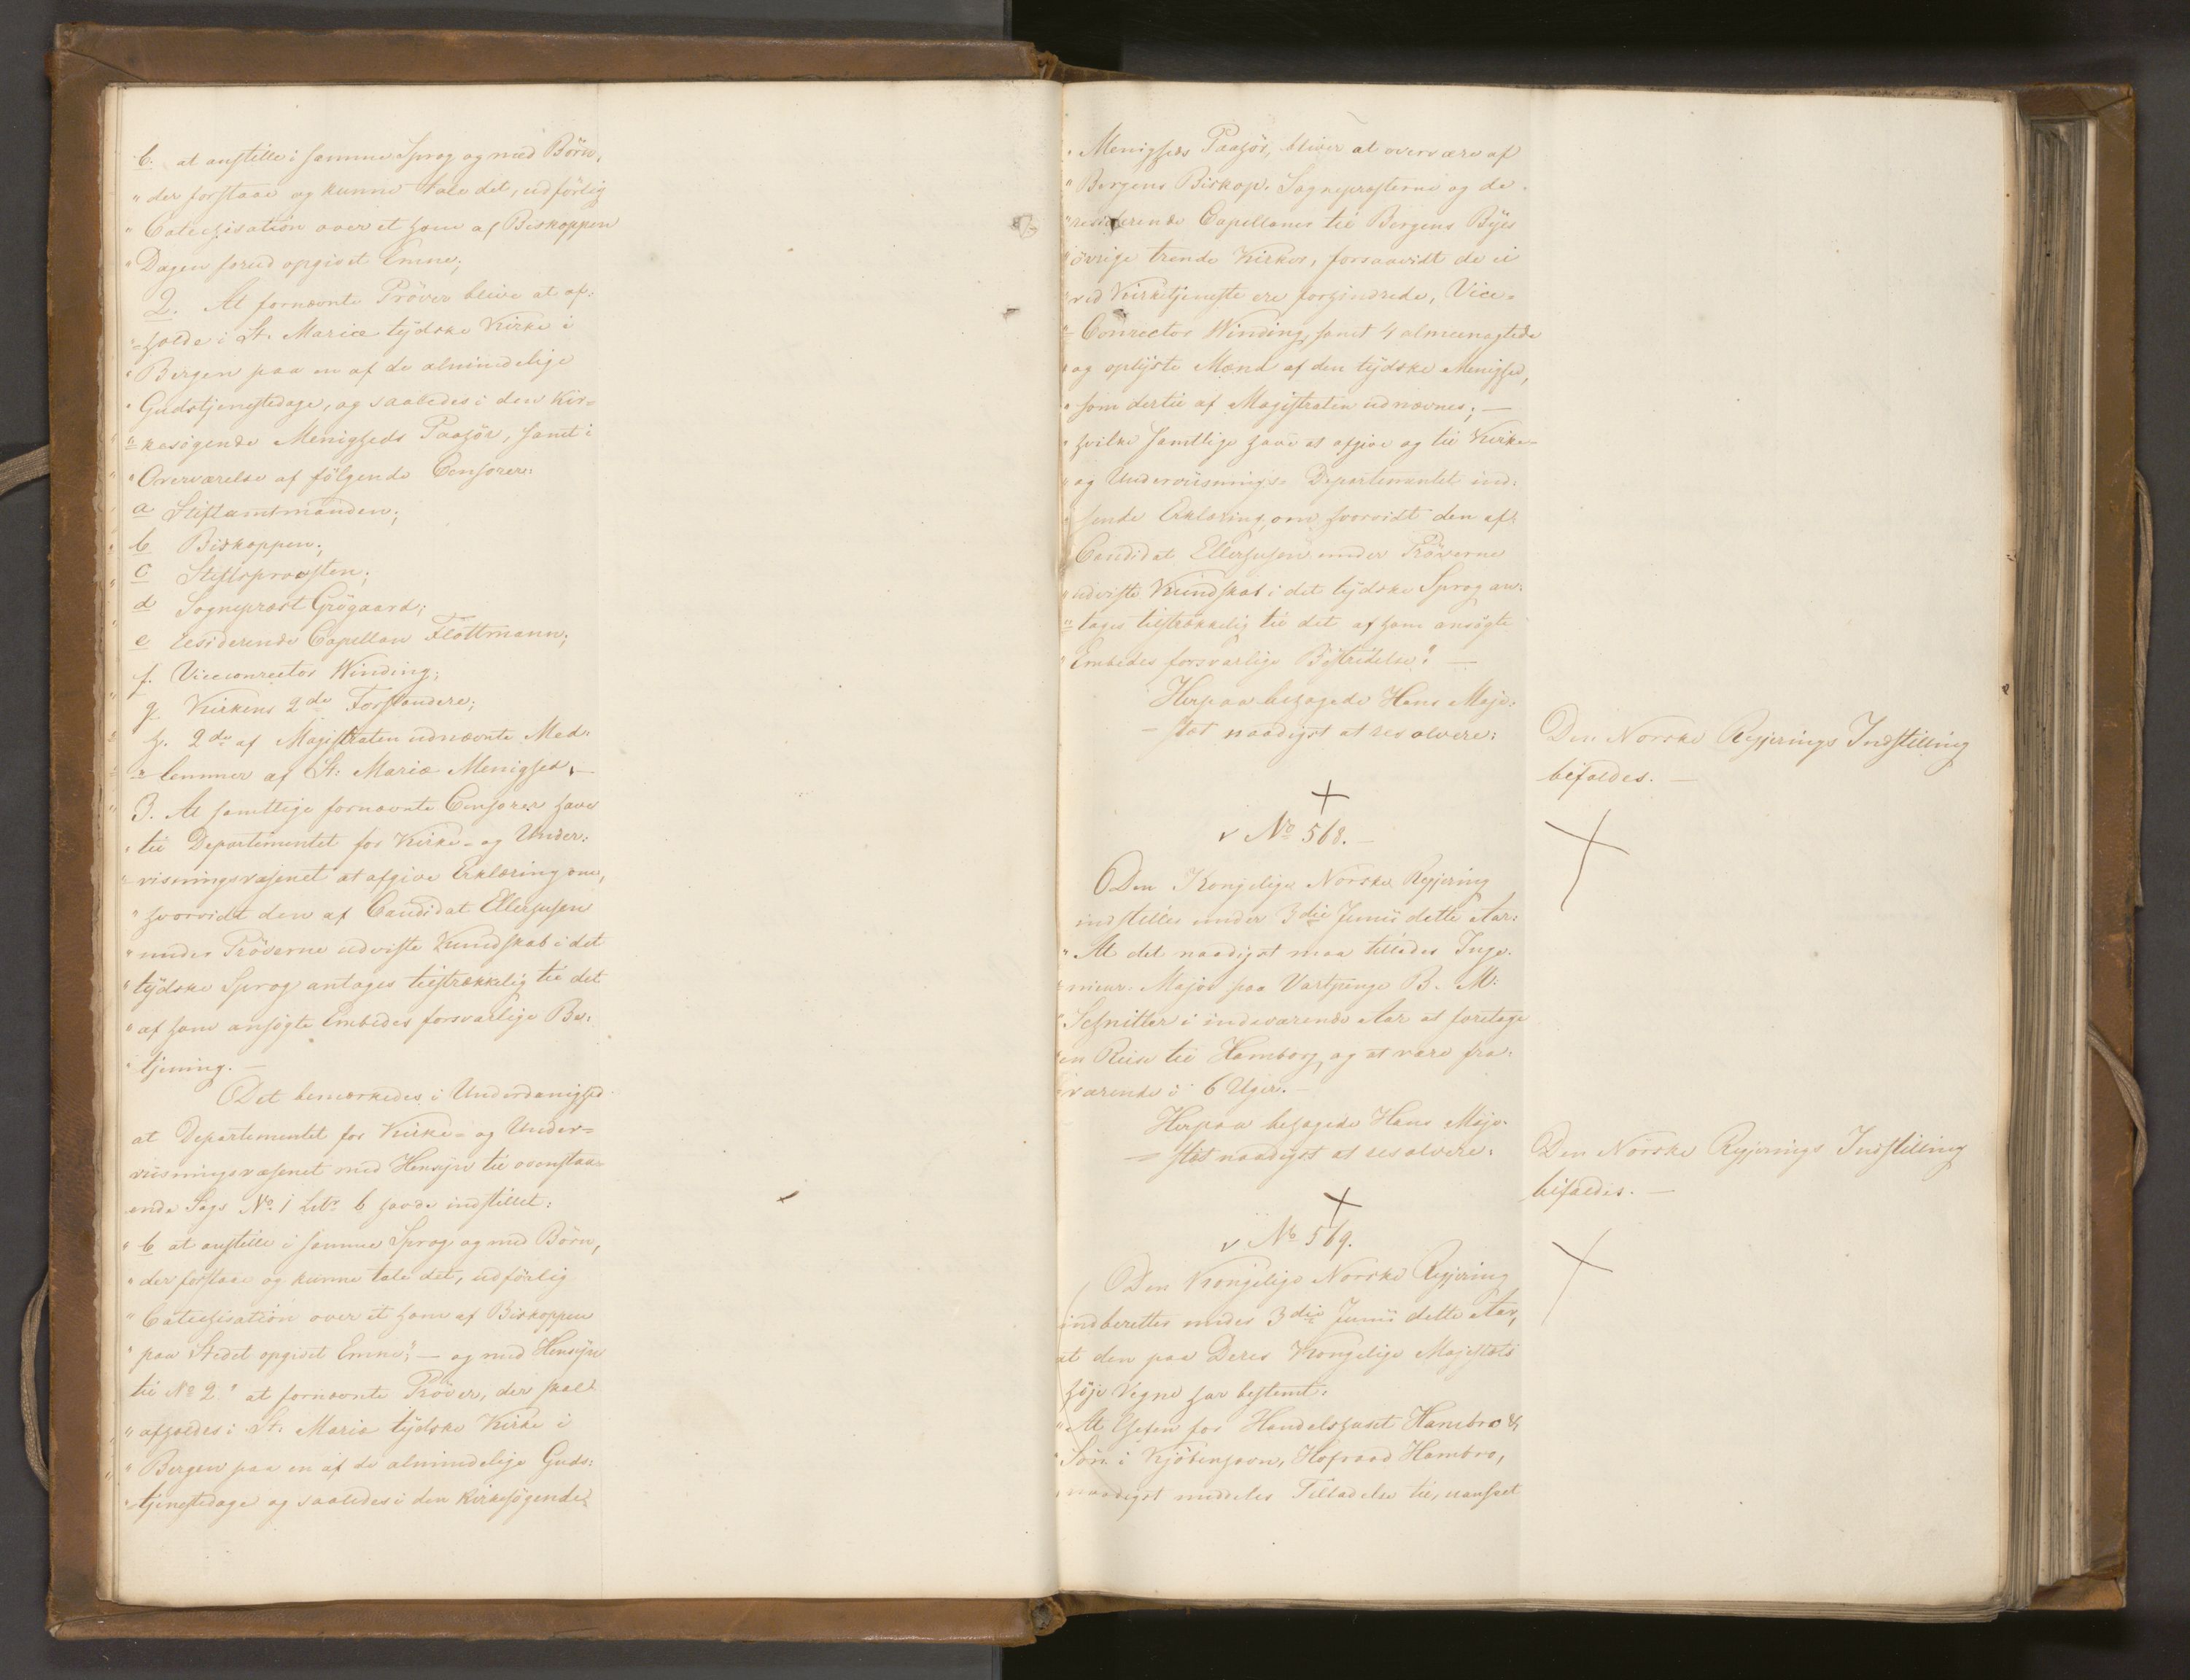 b. at anstille i samme Sprog og med Börn,
" der forstaae og kunne tale det, udförlig
" Catechisation over et ham af Biskoppen
" Dagen forud opgivet Emne;
2. At fornævnte Pröver blive at af-
"=holde i St. Mariæ tydske Kirke i
" Bergen paa en af de almindelige
" Gudstjenestedage, og saaledes i den Kir=
"=kesögende Menigheds Paahör, samt i
" Overværelse af fölgende Censorer:
a Stiftamtmanden;
b Biskoppen;
c Stiftsprovsten;
d Sognepræst Grögaard;
e residerende Capellan Flottmann;
f. Viceconrector Winding;
g Kirkens 2de Forstandere;
h. 2de af Magistraten udnævnte Med-
"=lemmer af St. Mariæ Menighed. —
3. At samtlige fornævnte Censorer have
" til Departementet for Kirke- og Under-
"=visningsvæsenet at afgive Erklæring om,
" hvorvidt den af Candidat Ellerhusen
" under Pröverne udviste Kundskab i det
" tydske Sprog antages tilstrækkelig til det
" af ham ansögte Embedes forsvarlige Be-
" tjening. —
Det bemærkedes i Underdanighed
at Departementet for Kirke- og Under=
viisningsvæsenet med Hensyn til ovenstaa=
ende Sags No 1 Litr. b havde indstillet:
" b at anstille i samme Sprog og med Börn,
" der forstaae og kunne tale det, udförlig
" Catechisation over et ham af Biskoppen
" paa Stedet opgivet Emne"; — og med Hensyn
til No 2. " at fornævnte Pröver, der skal
" afholdes i St. Mariæ tydske Kirke i
" Bergen paa en af de almindelige Guds-
"=tjenestedage og saaledes i den kirkesögende
" Menigheds Paahör, bliver at overvære af
" Bergens Biskop. Sognepræsterne og de
" residerende Capellaner til Bergens Byes
" övrige trende Kirker, forsaavidt de ei
" ved Kirketjeneste ere forhindrede, Vice-
"=Conrector Winding, samt 4 almeenagtede
" og oplyste Mænd af den tydske Menighed,
" som dertil af Magistraten udnævnes; —
" hvilke samtlige have at afgive og til Kirke-
" og Underviisnings-Departementet ind-
" sende Erklæring, om hvorvidt den af
" Candidat Ellerhusen under Pröverne
" udviste Kundskab i det tydske Sprog an-
"=tages tilstrækkelig til det af ham ansögte
" Embedes forsvarlige Bestridelse". —
Herpaa behagede Hans Maje-
=stæt naadigst at resolvere:
Den Norske Regjerings Indstilling
bifaldes. —
No 568. —
Den Kongelige Norske Regjering
indstiller under 3die Junii dette Aar:
" At det naadigst maa tillades Inge-
" nieur-Major paa Vartpenge B. M.
" Schnitler i indeværende Aar at foretage
" en Reise til Hamborg, og at være fra-
"=værende i 6 Uger. —
Herpaa behagede Hans Maje-
=stæt naadigst at resolvere:
Den Norske Regjerings Indstilling
bifaldes. —
No 569.
Den Kongelige Norske Regjering
indberetter under 3die Junii dette Aar,
at den paa Deres Kongelige Majestæts
höje Vegne har bestemt:
" At Chefen for Handelshuset Hambro &
" Sön i Kjöbenhavn, Hofraad Hambro,
" naadigst meddeles Tilladelse til, uanseet